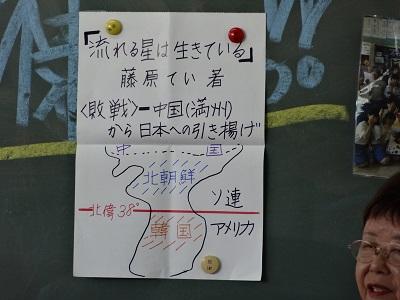 「流れる星は生きている」
藤原てい著
〈敗戦〉ー中国(満州)
から日本への引き揚げ
中 国
北朝鮮
ソ連
北偉38°
韓国
アメリカ